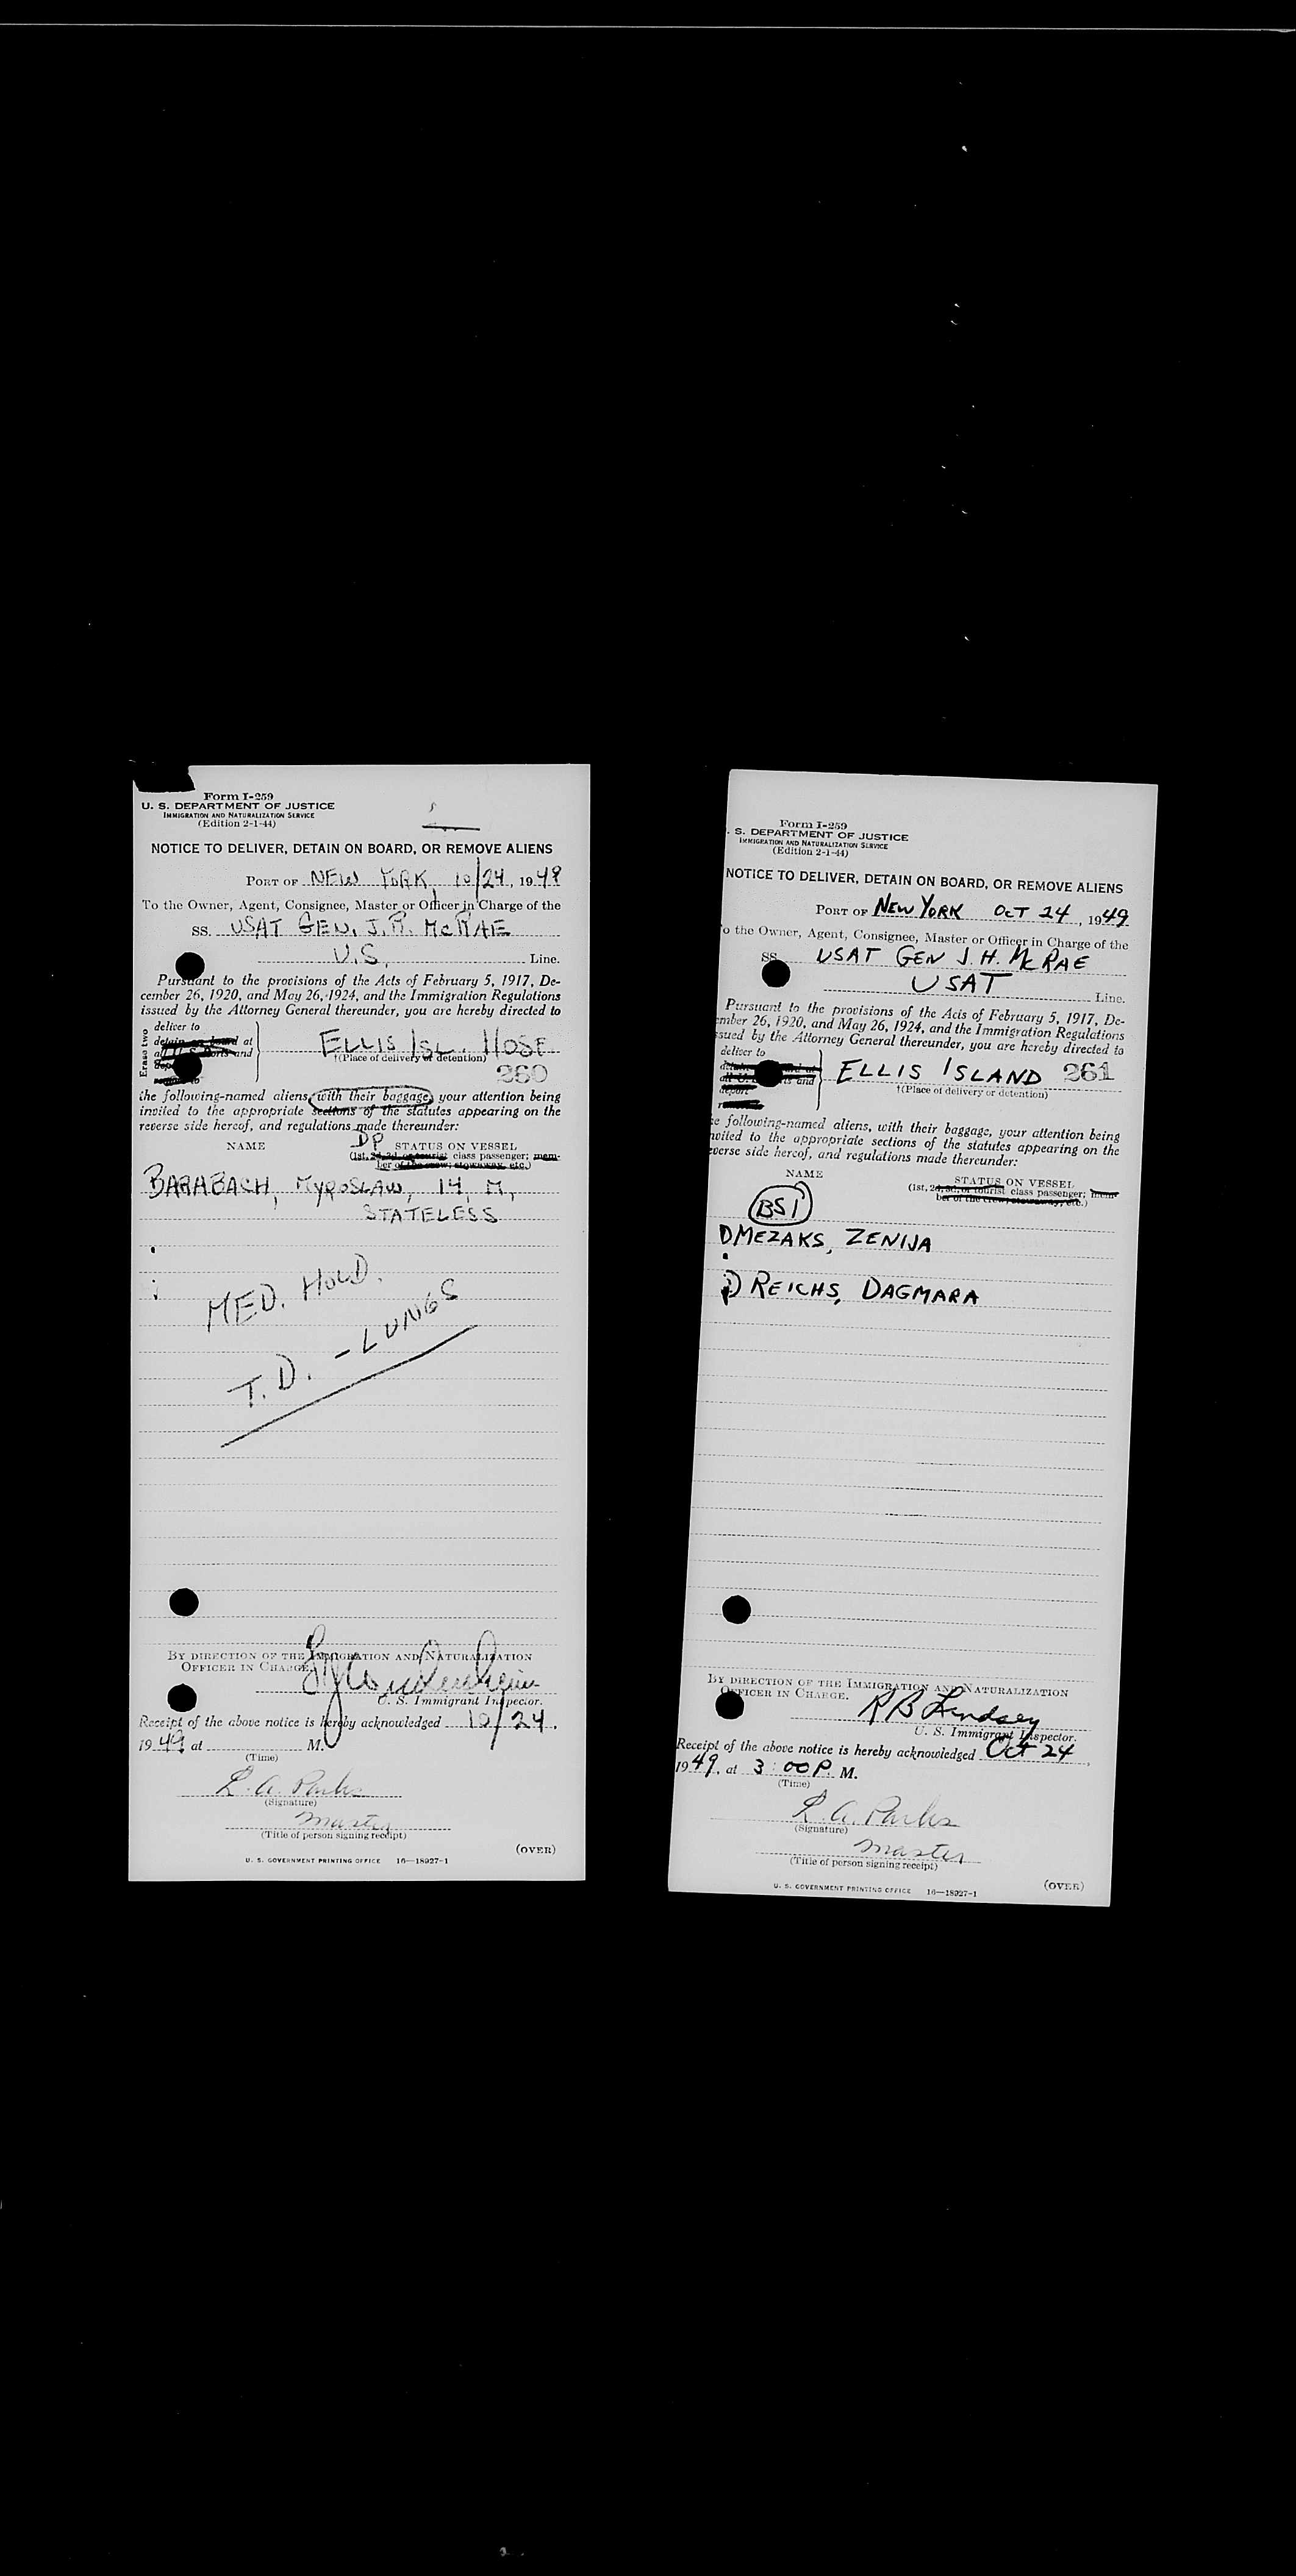 Form I-259
U. S. DEPARTMENT OF JUSTICE
IMMIGRATION AND NATURALIZATION SERVICE
(Edition 2-1-44)
NOTICE TO DELIVER, DETAIN ON BOARD, OR REMOVE ALIENS
PORT OF NEW YORK, 10/24, 1949
To the Owner, Agent, Consignee, Master or Officer in Charge of the
SS. USAT GEN. J.H. McRAE
U.S. Line.
Pursuant to the provisions of the Acts of February 5, 1917, De-
cember 26, 1920, and May 26, 1924, and the Immigration Regulations
issued by the Attorney General thereunder, you are hereby directed to
Erase two
deliver to
detain on board at
all U. S. ports and
ELLIS ISL. HOSP
†(Place of delivery or detention)
260
the following-named aliens, with their baggage, your attention being
invited to the appropriate sections of the statutes appearing on the
reverse side hereof, and regulations made thereunder:
DP
NAME STATUS ON VESSEL
(1st, 2d, 3d, or tourist class passenger; mem-
ber of the crew, stowaway, etc.)
BARABACH, MYROSLAW, 14, M,
STATELESS
MED. HOLD.
T.B. - LUNGS
BY DIRECTION OF THE IMMIGRATION AND NATURALIZATION
OFFICER IN CHARGE.
U. S. Immigrant Inspector.
Receipt of the above notice is hereby acknowledged 10/24,
1949 at M.
(Time)
L. A. Parks
(Signature)
Master
(Title of person signing receipt)
(OVER)
U. S. GOVERNMENT PRINTING OFFICE 16—18927-1
Form I-259
. S. DEPARTMENT OF JUSTICE
IMMIGRATION AND NATURALIZATION SERVICE
(Edition 2-1-44)
NOTICE TO DELIVER, DETAIN ON BOARD, OR REMOVE ALIENS
PORT OF NEW YORK OCT 24, 1949
o the Owner, Agent, Consignee, Master or Officer in Charge of the
SS. USAT GEN J. H. McRAE
USAT Line.
Pursuant to the provisions of the Acts of February 5, 1917, De-
ember 26, 1920, and May 26, 1924, and the Immigration Regulations
ssued by the Attorney General thereunder, you are hereby directed to
deliver to
ELLIS ISLAND 261
†(Place of delivery or detention)
e following-named aliens, with their baggage, your attention being
nvited to the appropriate sections of the statutes appearing on the
everse side hereof, and regulations made thereunder:
NAME STATUS ON VESSEL
(1st, 2d, 3d, or tourist class passenger; mem-
ber of the crew, stowaway, etc.)
BSI
DMEZAKS, ZENIJA
REICHS, DAGMARA
BY DIRECTION OF THE IMMIGRATION AND NATURALIZATION
OFFICER IN CHARGE.
R B Lindsey
U. S. Immigrant Inspector.
Receipt of the above notice is hereby acknowledged Oct 24,
1949, at 3:00 P. M.
(Time)
L. A. Parks
(Signature)
Master
(Title of person signing receipt)
(OVER)
U. S. GOVERNMENT PRINTING OFFICE 16—18927-1